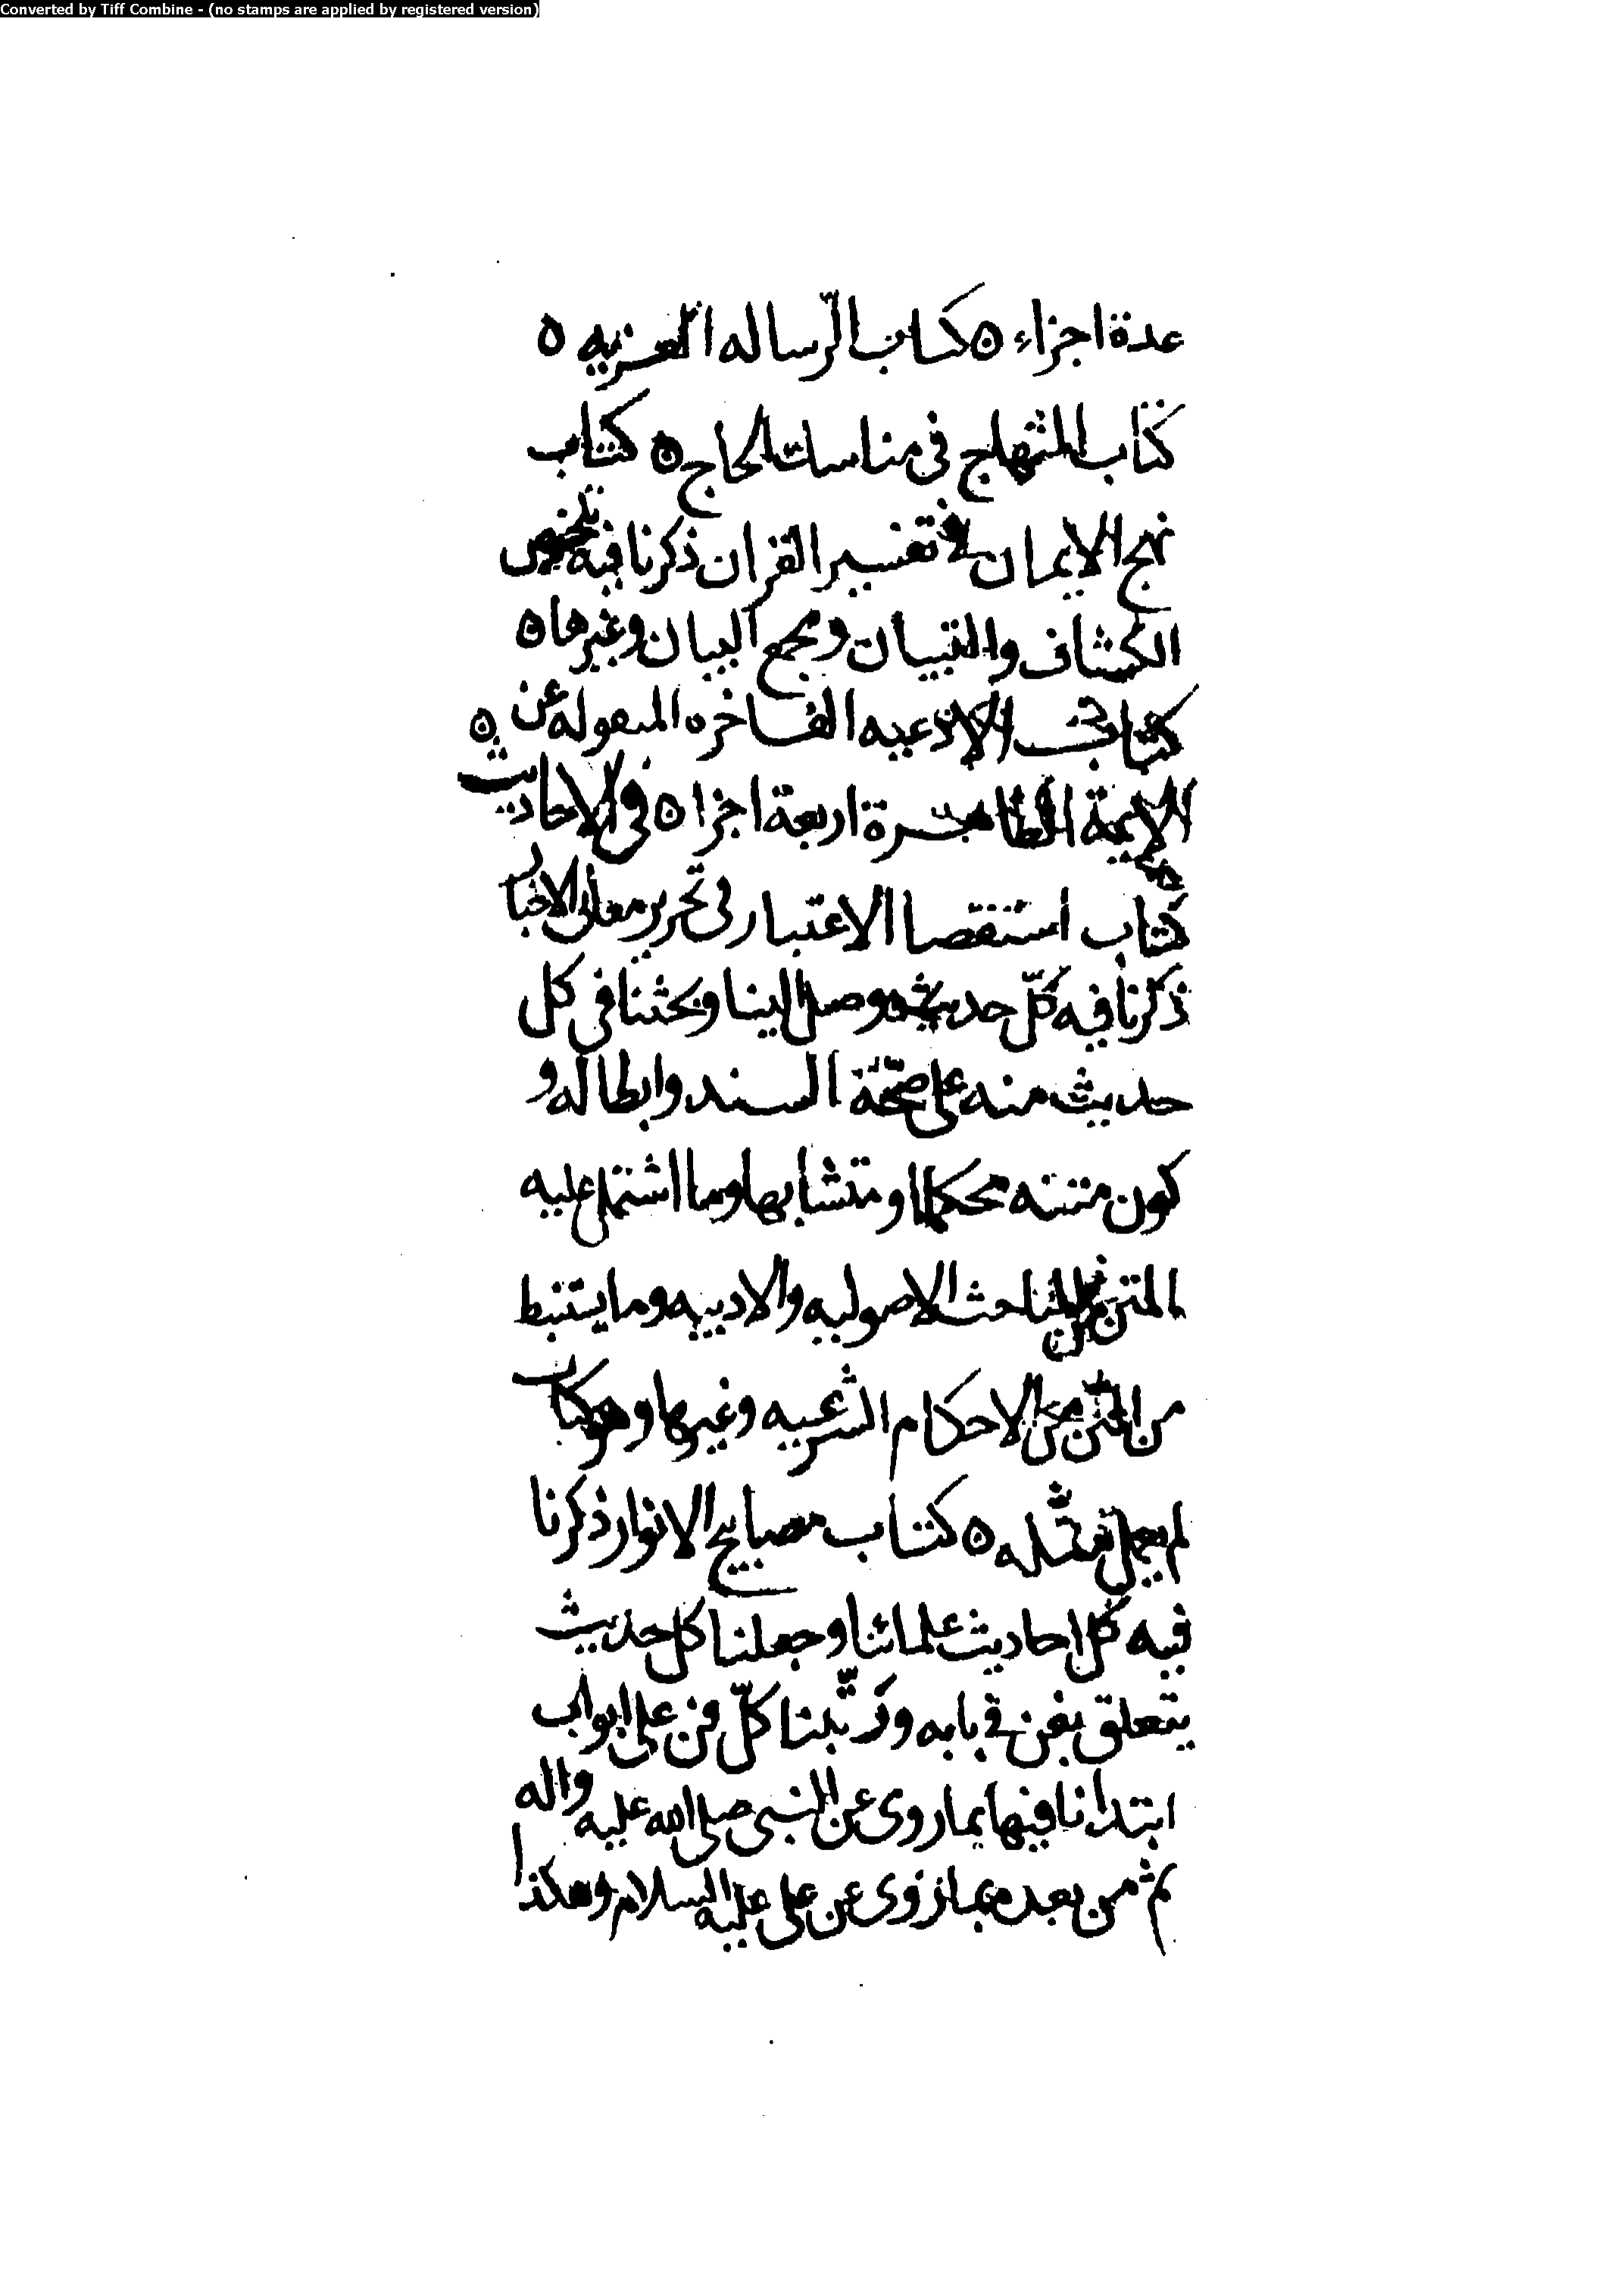 Converted by Tiff Combine - (no stamps are applied by registered version)
عدة اجزاء ه كتاب الرّساله العزيه ه
كتاب المنهاج فى مناسك الحاج ه كتاب
نهج الايمان فى تفسير القران ذكرنا فيه تلخيص
الكشاف والتبيان ومجمع البيان وغيرها ه
كتاب الادعيه الفاخره المنقوله عن
الايمة الطاهرة اربعة اجزا ه فى الاحاديث ه
كتاب استقصا الاعتبار فى تحرير معانى الاخبار
ذكرنا فيه كلّ حديث وصل الينا وبحثنا فى كل
حديث منه على صحّة السند وابطاله و
كون متنه محكما او متشابها وما اشتمل عليه
المتن من المباحث الاصوليه والادبيه وما يستنبط
من المتن من الاحكام الشرعيه وغيرها وهو كتاب
لم يعمل مثله ه كتاب مصابيح الانوار ذكرنا
فيه كل احاديث علمائنا وجعلنا كل حديث
يتعلق بفن فى بابه ورتّبنا كلّ فن على ابواب
ابتدانا فيها بما روى عن النبى صلى الله عليه واله
ثم من بعده بما روى عن على عليه السلام وهكذا